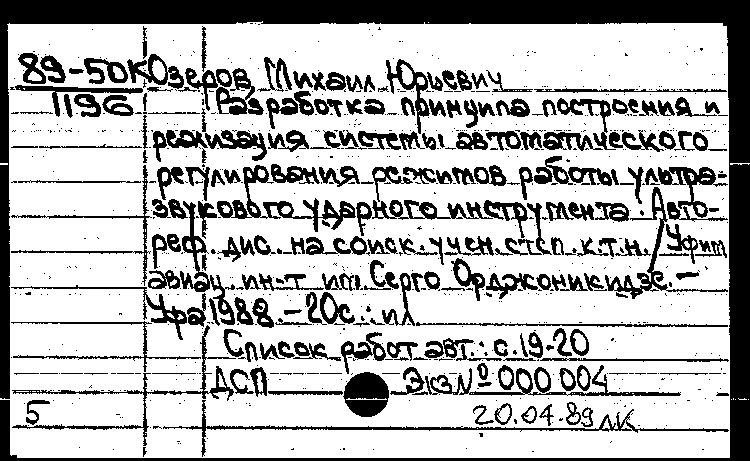 89-50К Озеров Михаил Юрьевич
1196 Разработка принципа построения и
реализация системы автоматического
регулирования режимов работы ультра-
звукового ударного инструмента. Авто-
реф. дис. на соиск. учен. степ. к.т.н. / Уфим
авиац. ин-т им. Серго Орджоникидзе. —
Уфа 1988. - 20с.: ил.
Список работ авт.: с.19-20
ДСП Экз № 000 004
5 20.04.89 лк